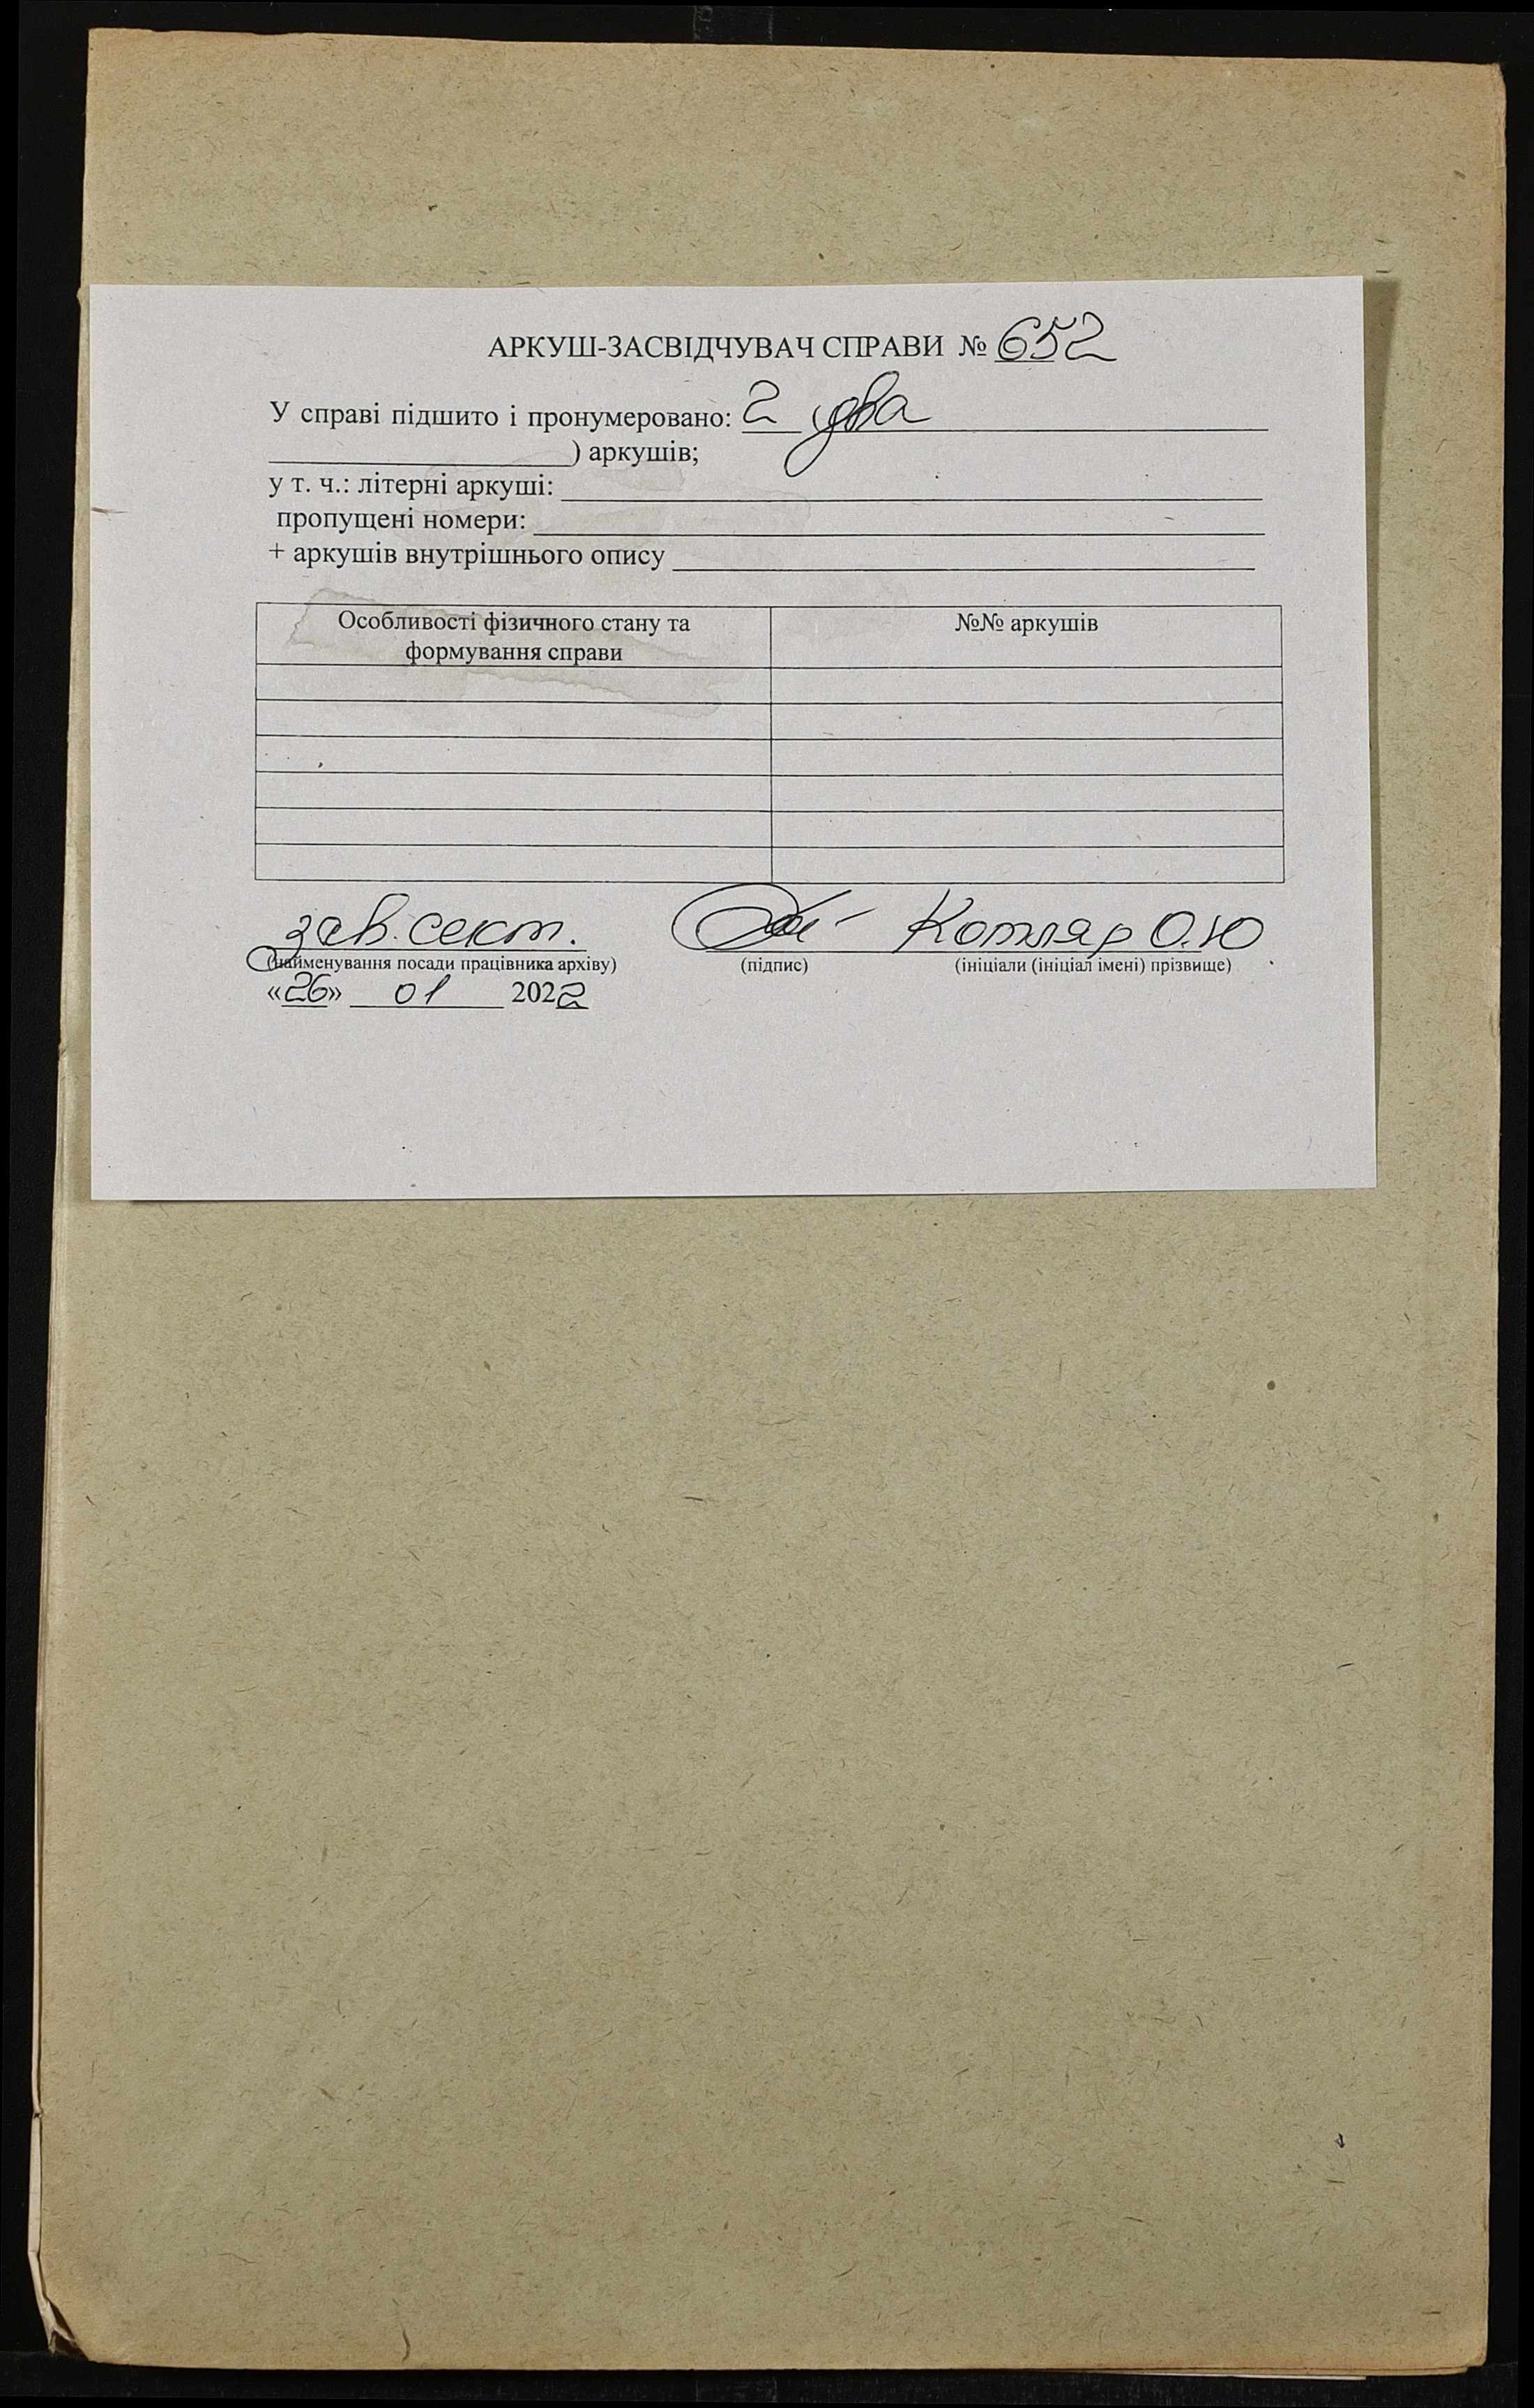 АРКУШ-ЗАСВІДЧУВАЧ СПРАВИ № 652
У справі підшито і пронумеровано: 2 (два
) аркушів;
у т. ч.: літерні аркуші:
пропущені номери:
+ аркушів внутрішнього опису
Особливості фізичного стану та №№ аркушів
формування справи
зав. сект. Котляр О.Ю
(найменування посади працівника архіву) (підпис) (ініціали (ініціал імені) прізвище)
«26» 01 2022